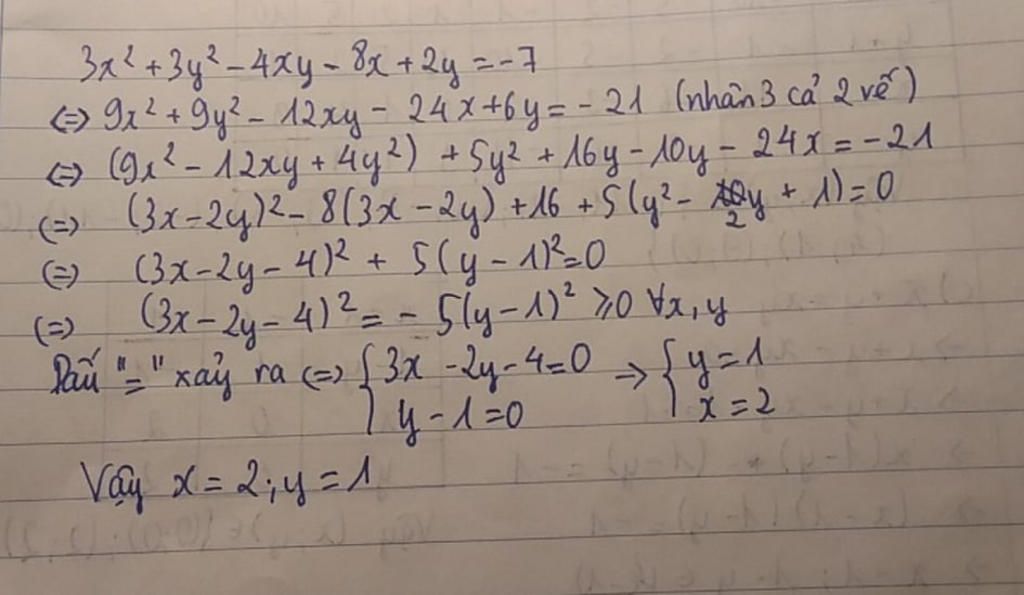 3x² + 3y² - 4xy - 8x + 2y = -7
<=> 9x² + 9y² - 12xy - 24x + 6y = -21 (nhân 3 cả 2 vế)
<=> (9x² - 12xy + 4y²) + 5y² + 16y - 10y - 24x = -21
(=) (3x - 2y)² - 8(3x - 2y) + 16 + 5(y² - 2y + 1) = 0
(=) (3x - 2y - 4)² + 5(y - 1)² = 0
(=) (3x - 2y - 4)² = - 5(y - 1)² ≥ 0 ∀x, y
Dấu "=" xảy ra (=) { 3x - 2y - 4 = 0 → { y = 1
y - 1 = 0 x = 2
Vậy x = 2 ; y = 1